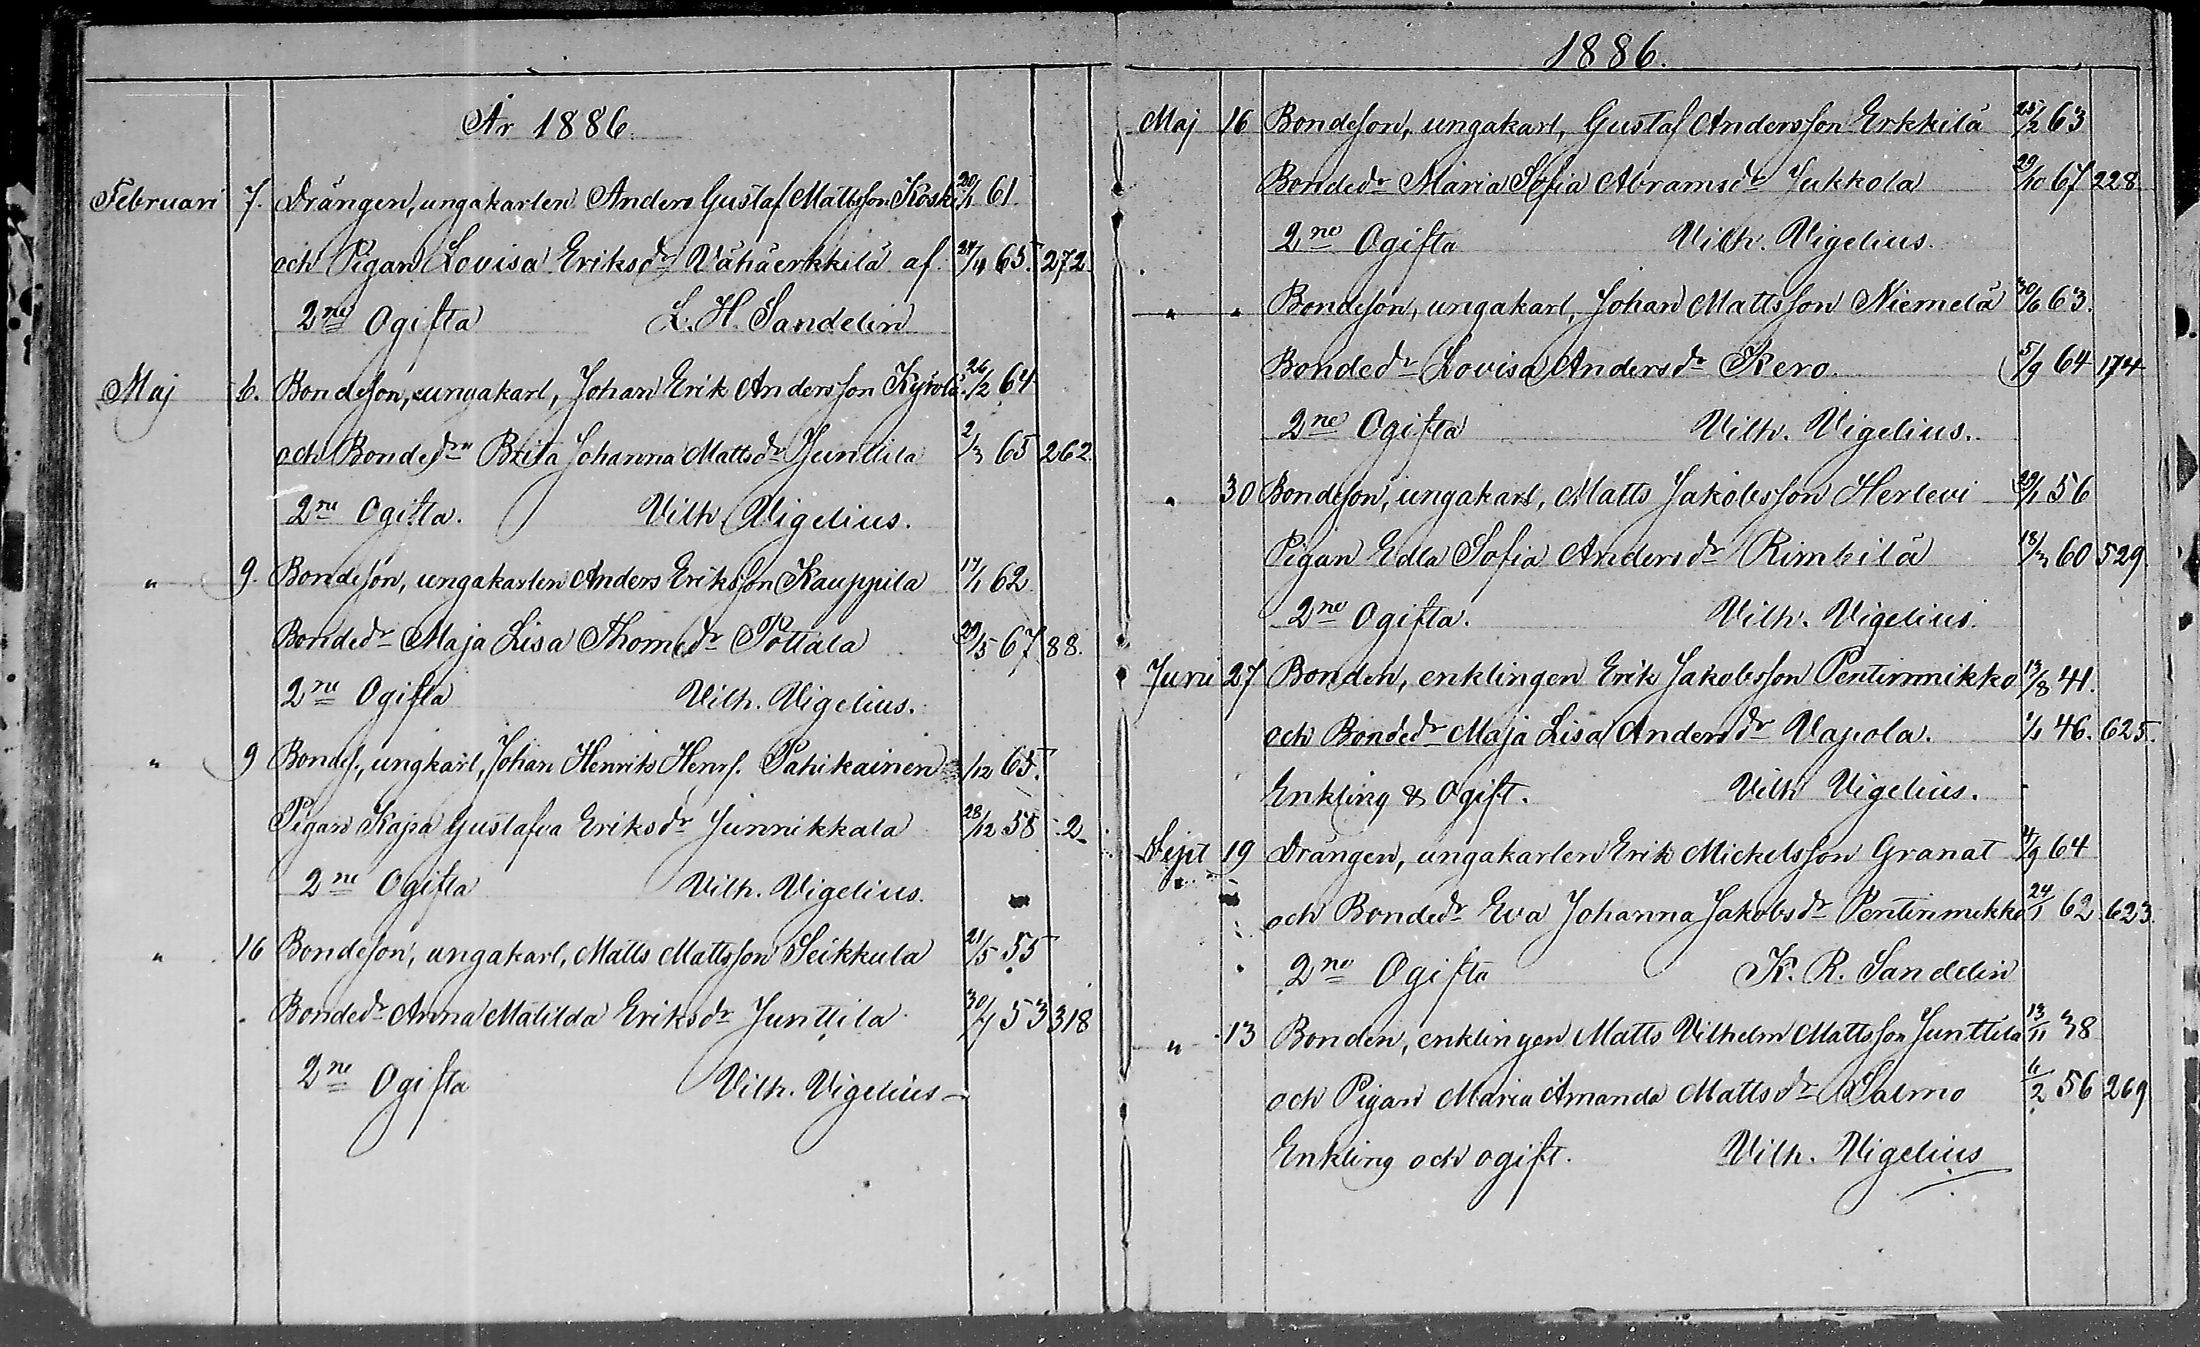 År 1886.
Februari 7. Drängen, ungakarlen Anders Gustaf Mattsson Koski 20/1 61.
och Pigan Lovisa Eriksdr Vähäerkkilä af. 24/4 65. 272.
2ne Ogifta L. H. Sandelin
Maj 6. Bondeson, ungakarl, Johan Erik Andersson Kyrölä. 26/2 64
och Bondedrn Brita Johanna Mattsdr Junttila 2/3 65 262
2ne Ogifta. Vilh. Vigelius.
" 9. Bondeson, ungakarlen Anders Eriksson Kauppila 17/1 62.
Bondedr Maja Lisa Thomedr Pottala 29/5 67 88.
2ne Ogifta Vilh. Vigelius.
" 9 Bondes., ungkarl, Johan Henrik Henrs. Pahikainen /12 65.
Pigan Kajsa Gustafva Eriksdr Junnikkala 28/12 58 2
2ne Ogifta Vilh. Vigelius.
" 16 Bondeson, ungakarl, Matts Mattsson Seikkula 21/5 55
Bondedr Anna Matilda Eriksdr Junttila 30/7 53 318
2ne Ogifta Vilh. Vigelius
1886.
Maj 16 Bondeson, ungakarl, Gustaf Andersson Erkkilä 25/2 63
Bondedr Maria Sofia Abramsdr Jukkola 29/10 67 228
2ne Ogifta Vilh. Vigelius.
" " Bondeson, ungakarl, Johan Mattsson Niemelä 30/6 63.
Bondedr Lovisa Andersdr Kero. 5/9 64 174
2ne Ogifta Vilh. Vigelius.
" 30 Bondeson, ungakarl, Matts Jakobsson Herlevi 29/1 56
Pigan Edla Sofia Andersdr Rimpilä 18/3 60 529.
2ne Ogifta. Vilh. Vigelius.
Juni 27 Bonden, enklingen Erik Jakobsson Pentinmikko 13/8 41.
och Bondedr Maja Lisa Andersdr Vapola. 1/1 46. 625.
Enkling & Ogift. Vilh Vigelius.
Sept 19 Drängen, ungakarlen Erik Mickelsson Granat 4/9 64
och Bondedr Eva Johanna Jakobsdr Pentinmikko 24/1 62 623.
2ne Ogifta K. R. Sandelin
" 13 Bonden, enklingen Matts Vilhelm Mattsson Junttila 13/11 38
och Pigan Maria Amanda Mattsdr Salmo 11/2 56 269
Enkling och ogift. Vilh. Vigelius